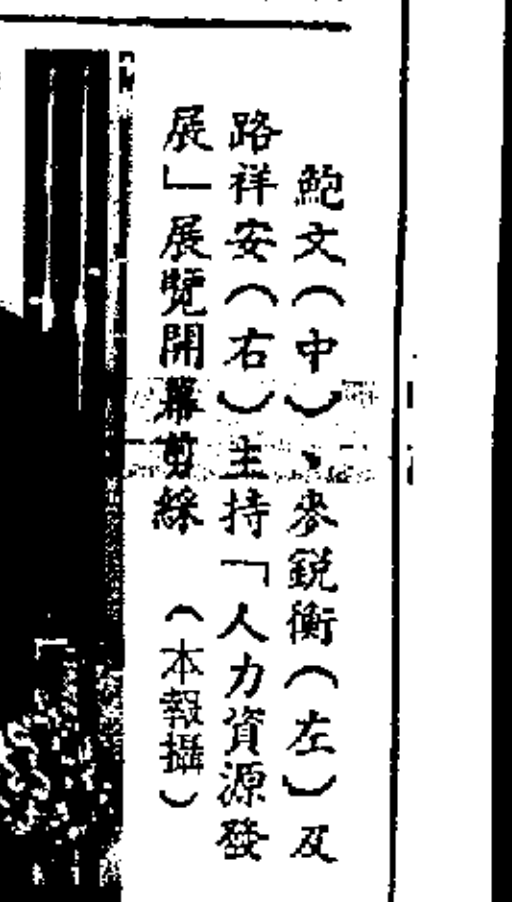 鮑文(中)、麥銳衡(左)及
路祥安(右)主持「人力資源發
展」展覽開幕剪綵 (本報攝)